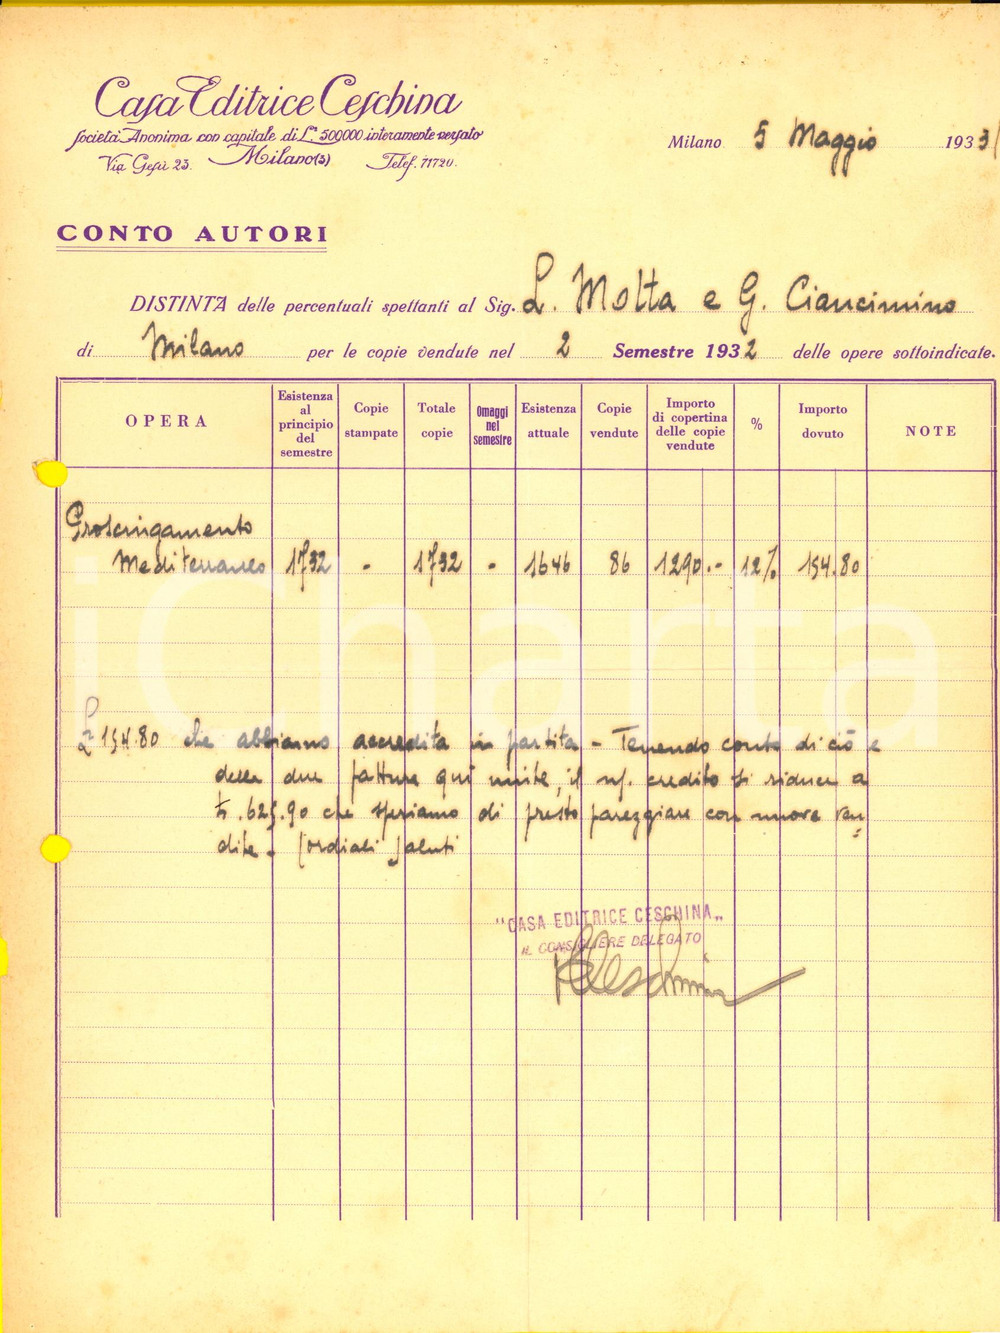 Casa Editrice Ceschina
Società Anonima con capitale di L.re 500000 interamente versato
Via Gesù 23. Milano (3) Telef. 71720.
Milano 5 Maggio 1933
CONTO AUTORI
DISTINTA delle percentuali spettanti al Sig. L. Motta e G. Ciancimino
di Milano per le copie vendute nel 2 Semestre 1932 delle opere sottoindicate.
OPERA
Esistenza al principio del semestre
Copie stampate
Totale copie
Omaggi nel semestre
Esistenza attuale
Copie vendute
Importo di copertina delle copie vendute
%
Importo dovuto
NOTE
Prosciugamento
Mediterraneo 1732 - 1732 - 1646 86 1290.- 12% 154.80
£ 154.80 che abbiamo accredita in partita - Tenendo conto di ciò e
delle due fatture qui unite, il ns. credito si riduce a
£. 625.90 che speriamo di presto pareggiare con nuove ven=
dite. Cordiali saluti
"CASA EDITRICE CESCHINA"
IL CONSIGLIERE DELEGATO
Ceschina
iCharta